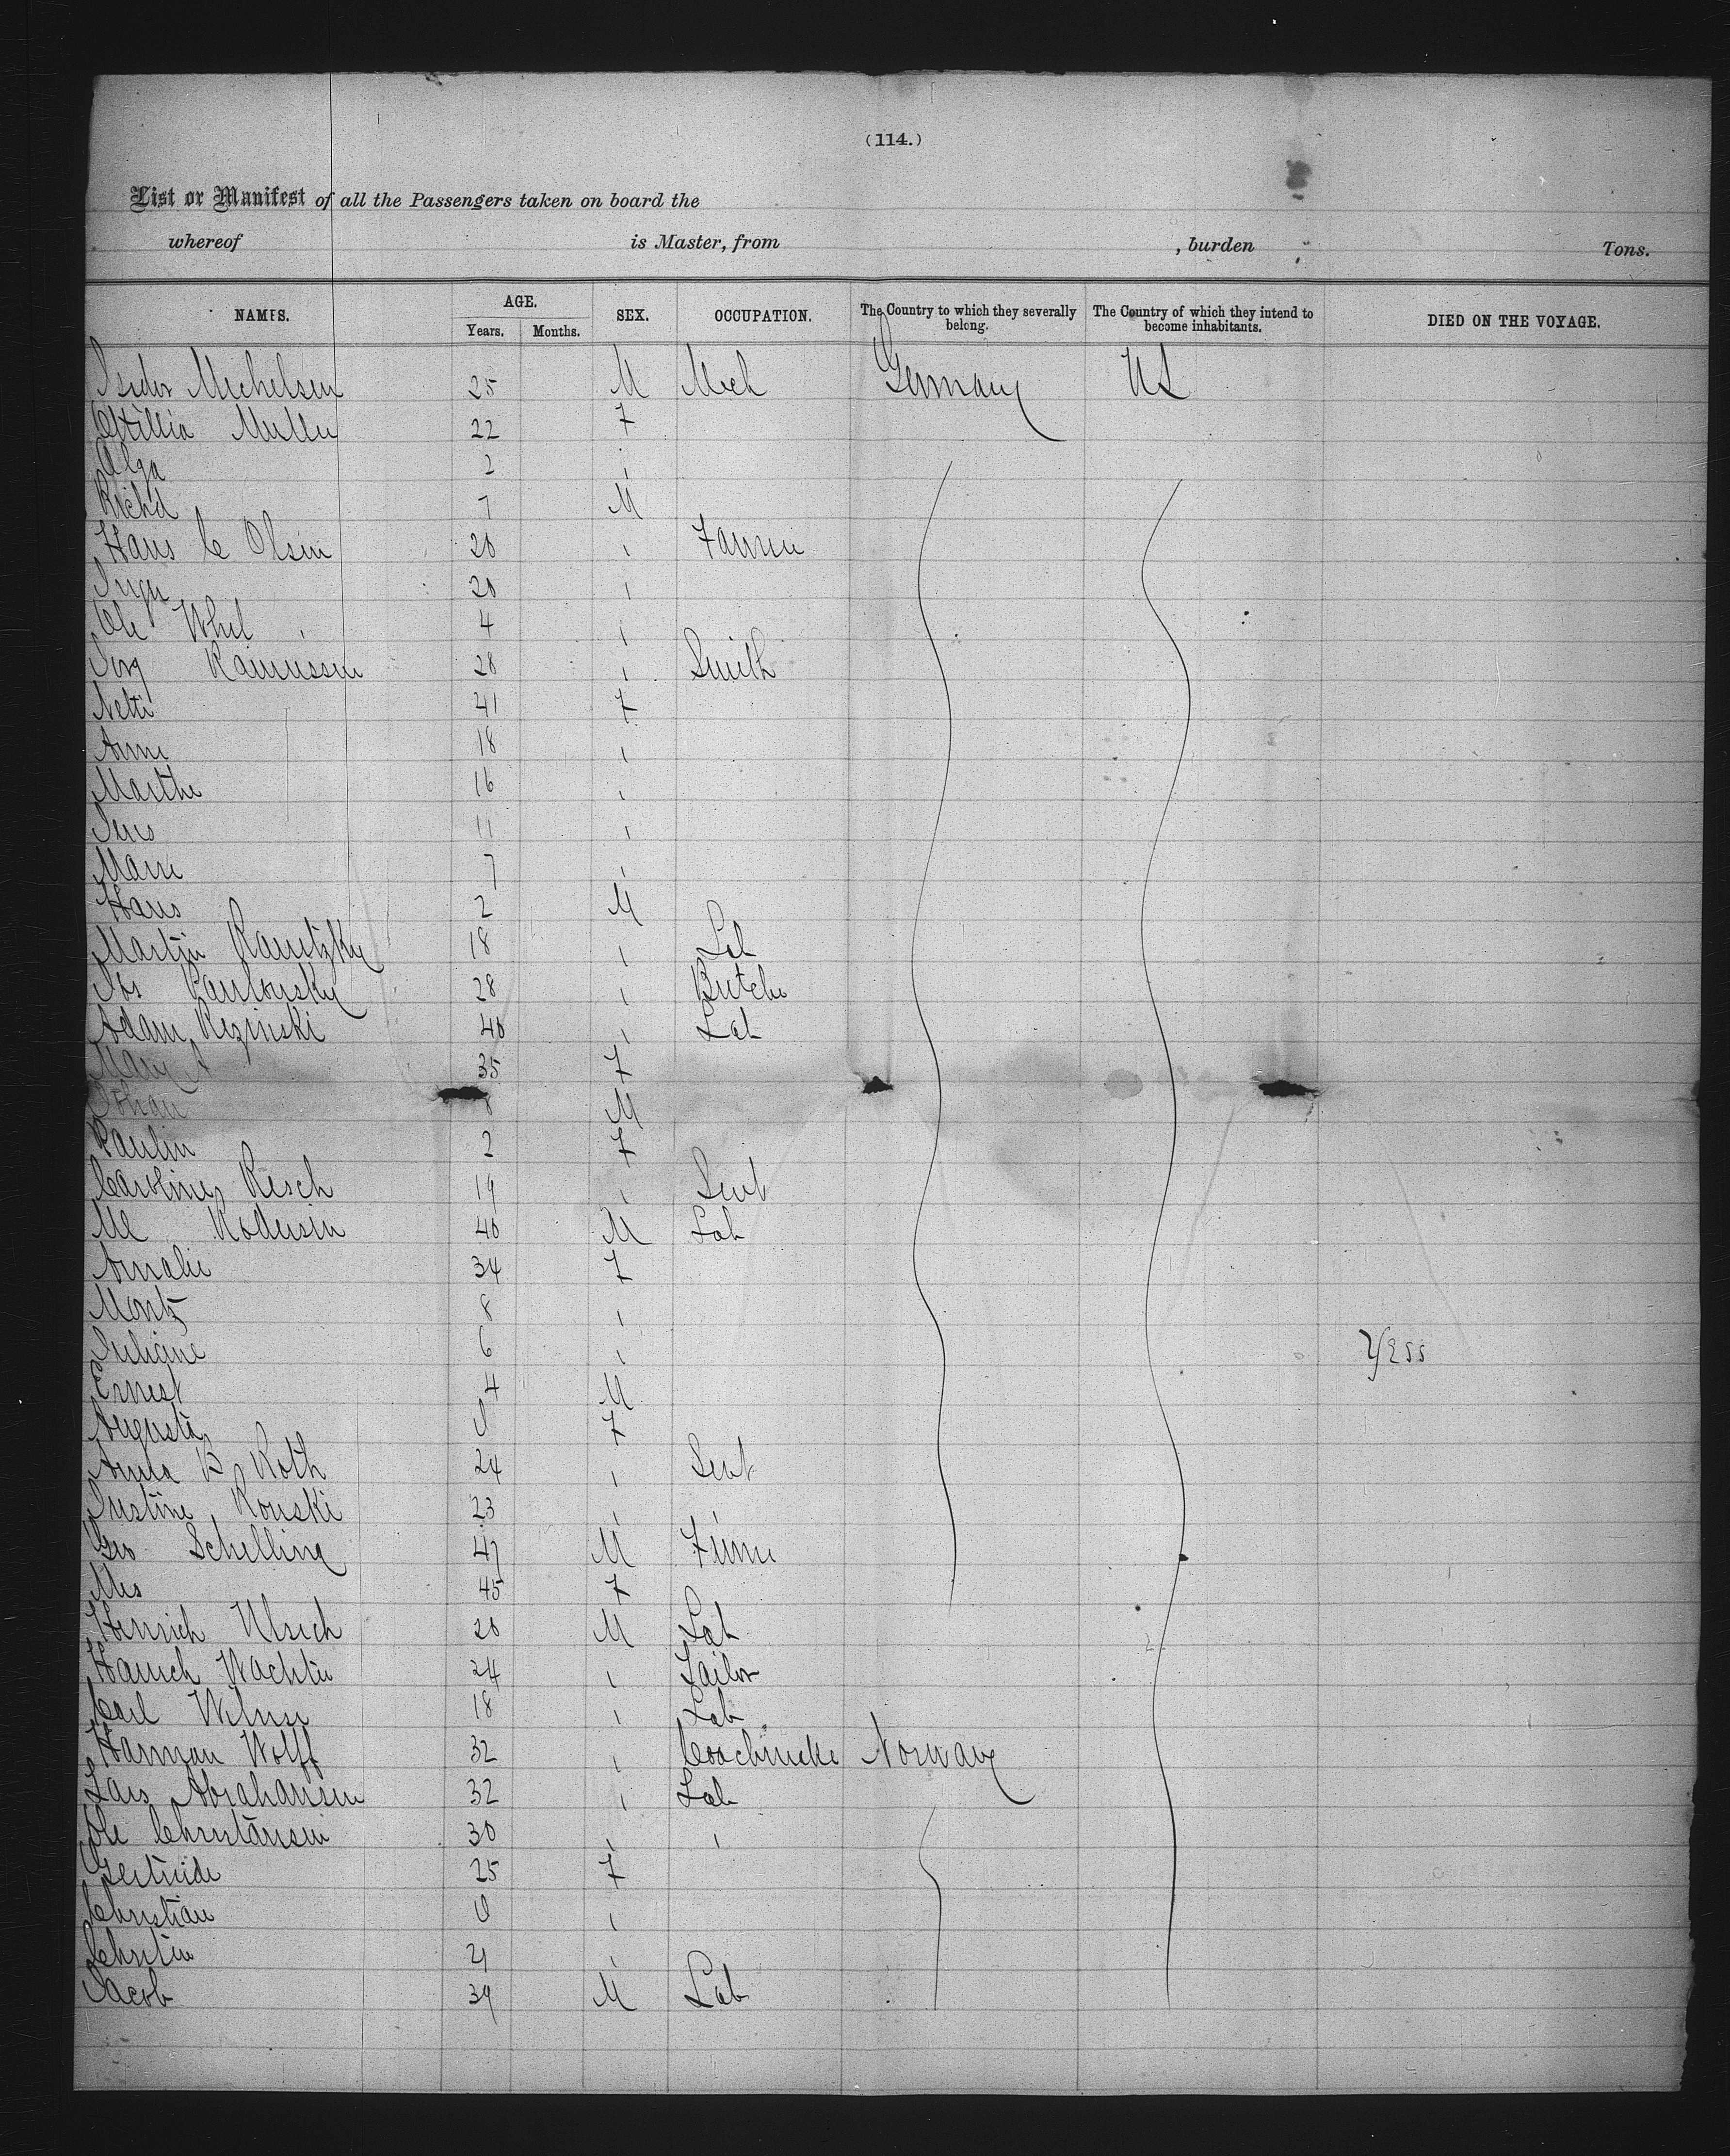 (114.)
List or Manifest of all the Passengers taken on board the
whereof is Master, from , burden Tons.
NAMES. AGE. SEX. OCCUPATION. The Country to which they severally belong. The Country of which they intend to become inhabitants. DIED ON THE VOYAGE.
Years. Months.
Isidor Michelsen 25 M Mech Germany US
Ottillia Muller 22 F
Olga 2 "
Richd 7 M
Hans C Olsen 20 " Farmer
20 "
Ole 4 "
Rasmussen 28 " Smith
Nelti 41 F
Anne 18 "
Marthe 16 "
Jens 11 "
Marie 7 "
Hans 2 M
Martin 18 " Lab
Jos 28 " Butche
Adam Rezinski 40 " Lab
Mary A 35 F
Johan 8 M
Paulin 2 F
Caroline Resch 19 " Servt
40 M Lab
Amalie 34 F
Moritz 8 "
Juliane 6 " Yess
Ernest 4 M
Augusta 0 F
Anna B Roth 24 " Servt
Justine Rouski 23 " "
Geo Schelling 47 M
Mrs 45 F
Henrich Ulrich 20 M Lab
Wachter 24 " Tailor
Carl 18 " Lab
Harman Wolff 32 " Norway
Lars Abrahamsen 32 " Lab
Ole Christansen 30 " "
Gertrude 25 F
Christian 0 "
21 "
Jacob 39 M Lab